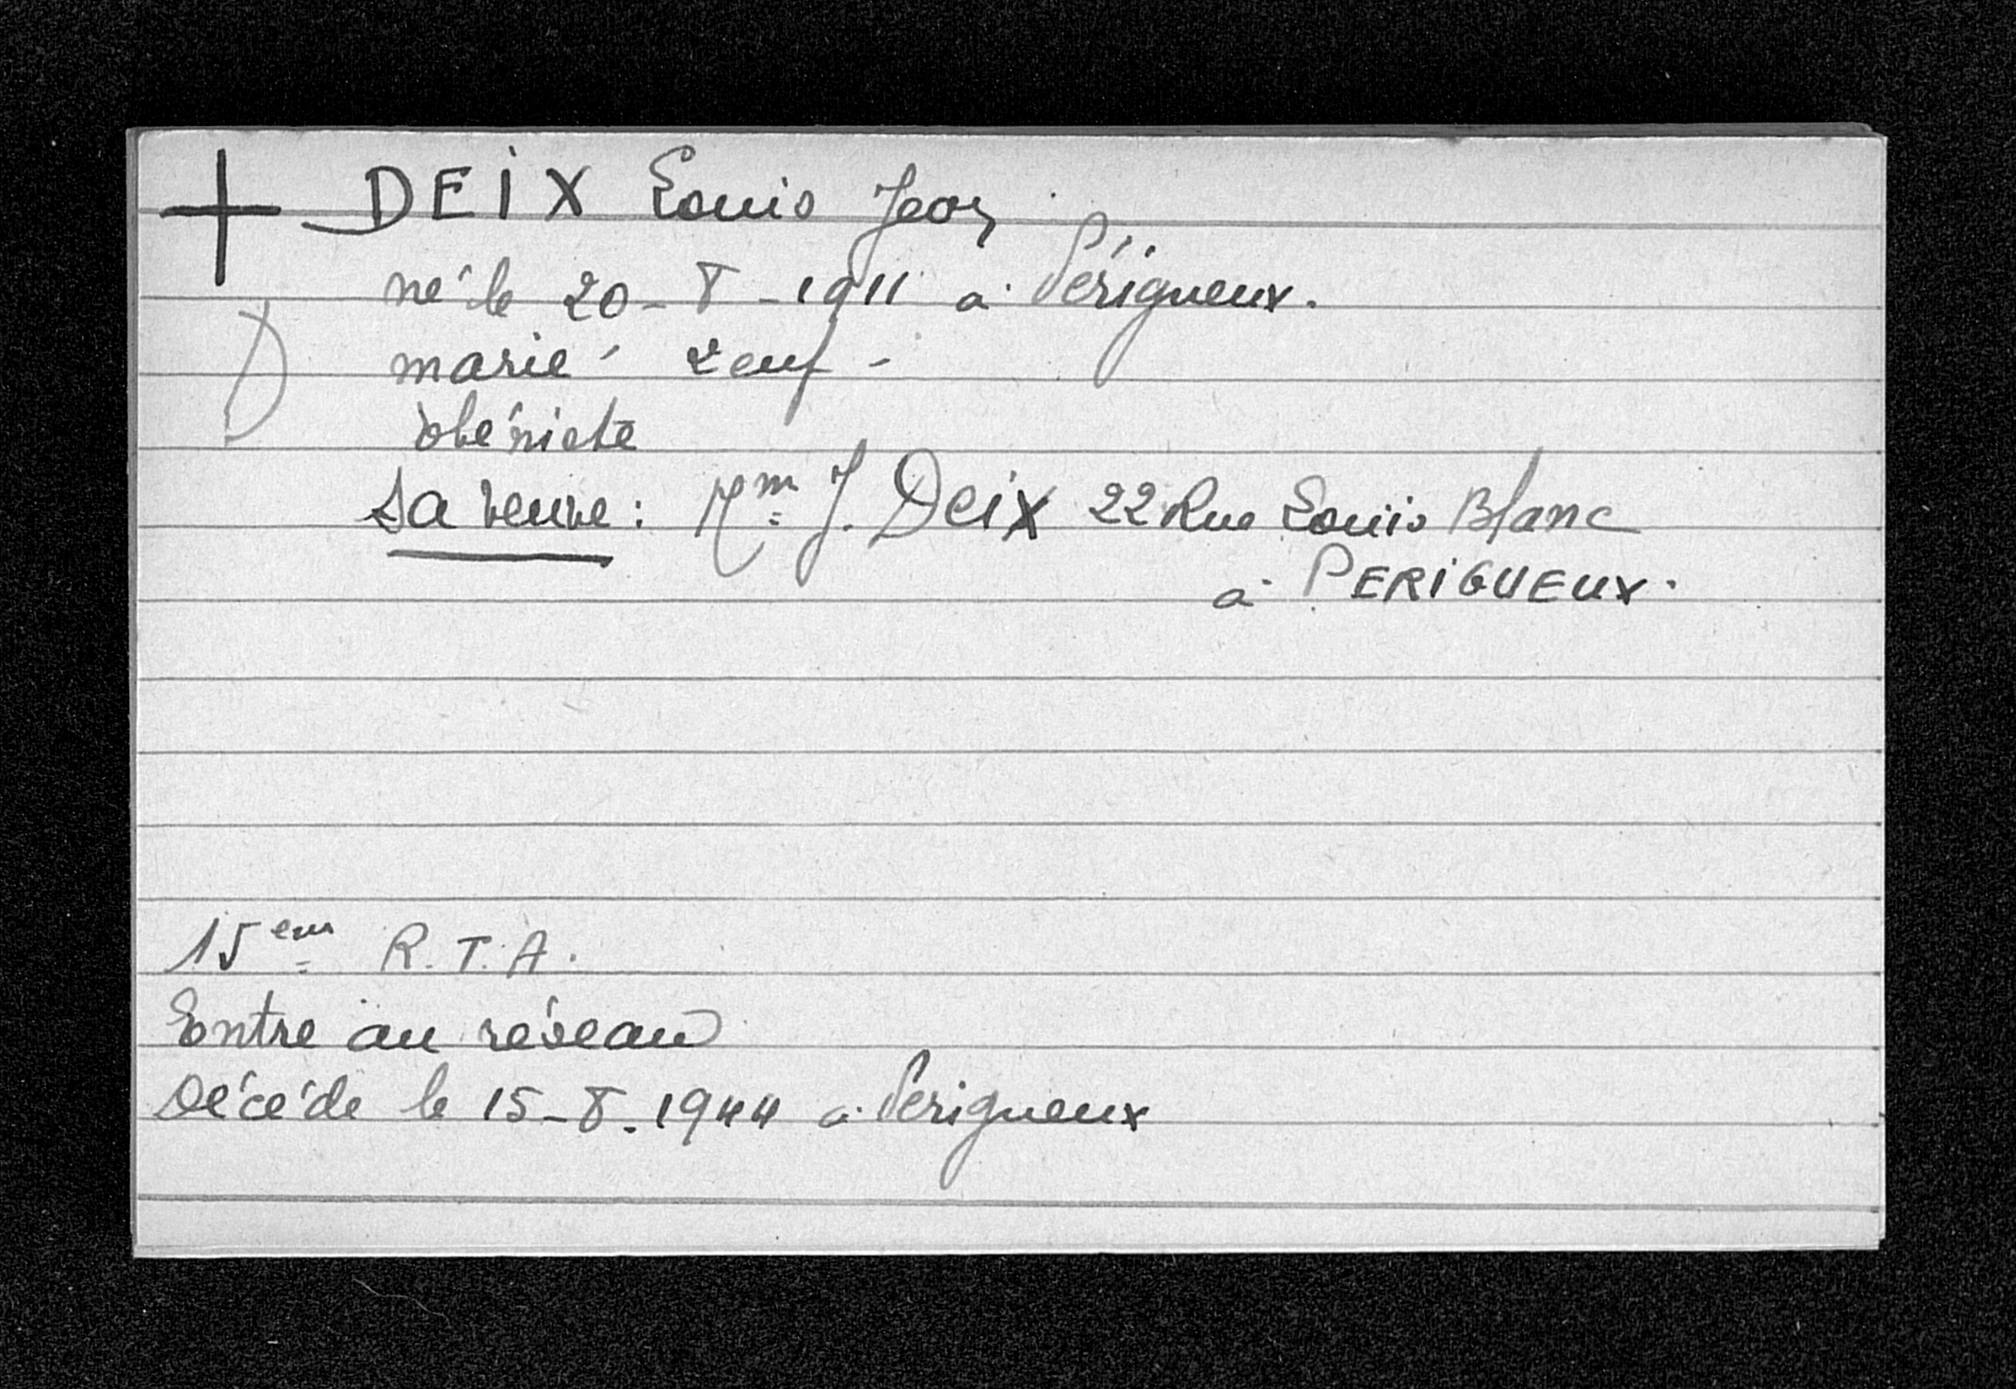 + DEIX Louis Jean
né le 20-8-1911 à Périgueux.
D marié 2 enf -
ébéniste
Sa veuve: Mme J. Deix 22 Rue Louis Blanc
à PERIGUEUX.
15eme R.T.A.
Entre au réseau
Décédé le 15-8-1944 à Perigueux